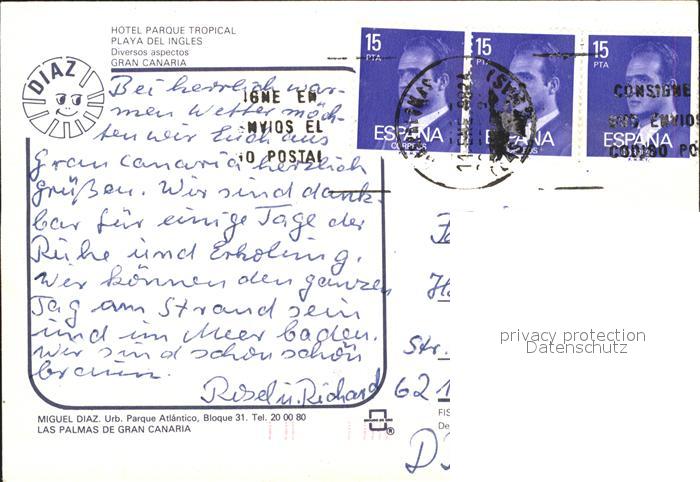 HOTEL PARQUE TROPICAL
PLAYA DEL INGLES
Diversos aspectos
GRAN CANARIA
DIAZ
Bei herrlich war-
men Wetter möch-
ten wir Euch aus
Gran Canaria herzlich
grüßen. Wir sind dank-
bar für einige Tage der
Ruhe und Erholung.
Wir können den ganzen
Tag am Strand sein
und im Meer baden.
Wir sind schon schön
braun.
Resel u. Richard
MIGUEL DIAZ. Urb. Parque Atlántico, Bloque 31. Tel. 20 00 80
LAS PALMAS DE GRAN CANARIA
IGNE EN
ENVIOS EL
O POSTAL
15
PTA
ESPAÑA
CORREOS
15
PTA
ESPAÑA
15
PTA
ESPAÑA
CONSIGNE
SUS ENVIOS
CODIGO PO
Str.
621
FIS
De
D
privacy protection
Datenschutz